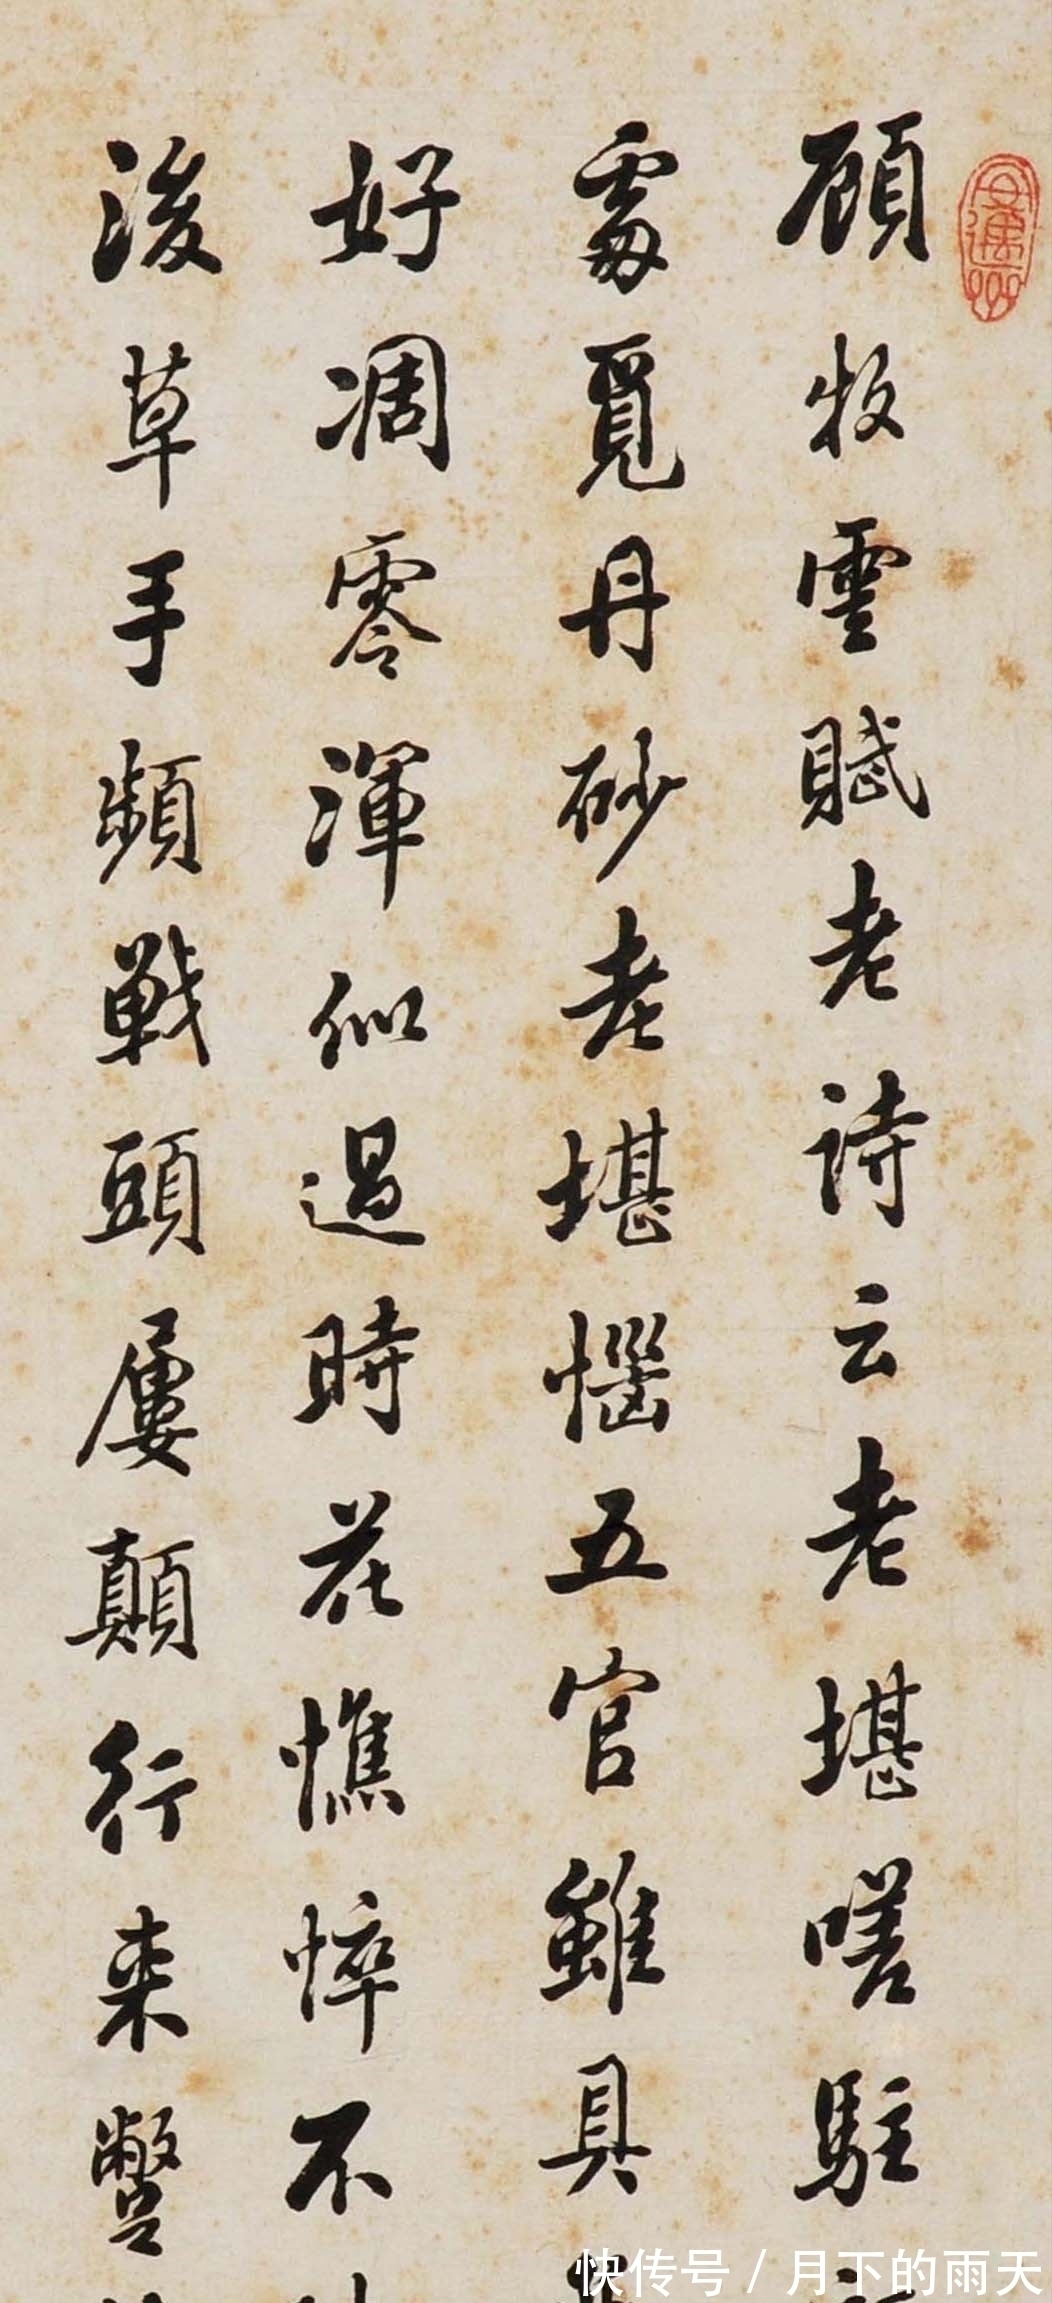 顧牧雲賦老詩云老堪嗟駐
處覓丹砂老堪惱五官雖具
好凋零渾似過時花憔悴不
後草手頻戰頭屢顛行來
快传号 / 月下的雨天